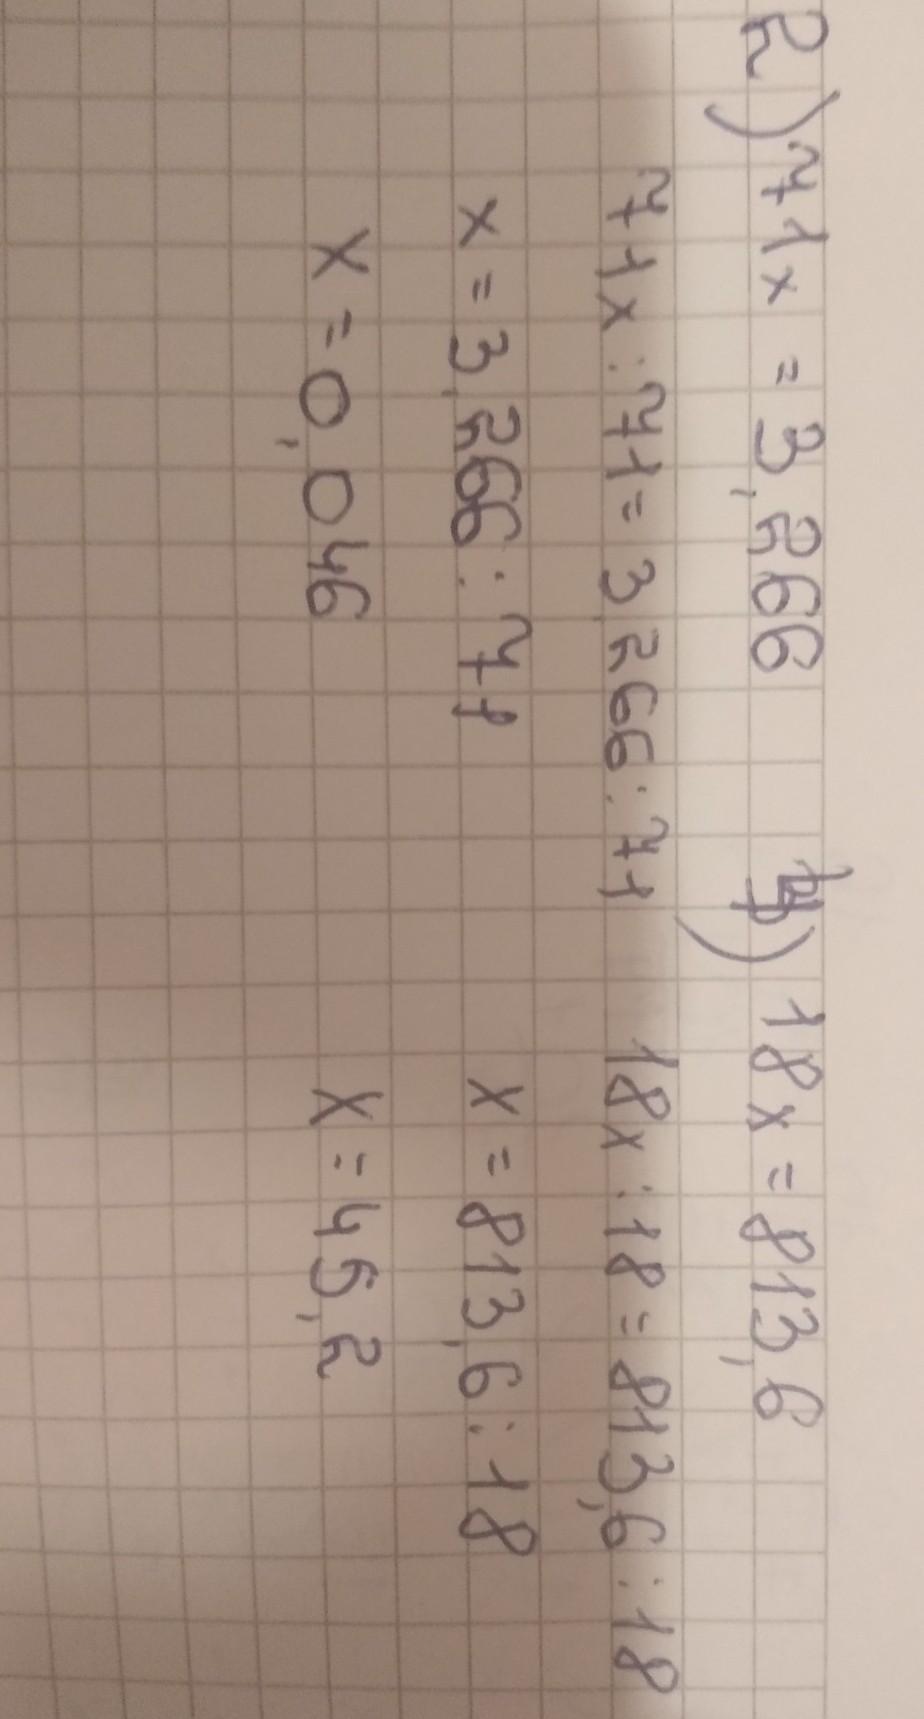 2) 71x = 3,266
71x : 71 = 3,266 : 71
x = 3,266 : 71
x = 0,046
4) 18x = 813,6
18x : 18 = 813,6 : 18
x = 813,6 : 18
x = 45,2